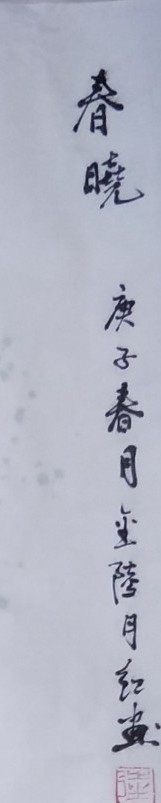 春曉
庚子春月金陵月红畫